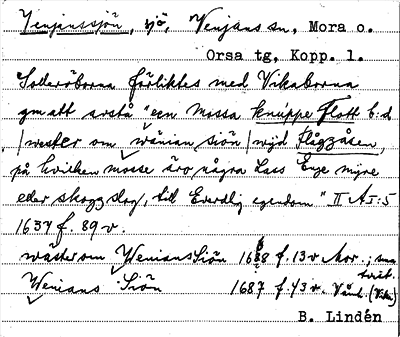 Venjanssjön, sjö, Venjans sn, Mora o.
Orsa tg, Kopp. l.
Solleröborna förliktes med Vikaborna
gm att avstå "een mossa knippe Flott b:d
/wester om wänian siön/ wijd Flåggåsen,
på hvilken mosse äro några Lass Enge myre
eller skogzslog, till Everdlig egendom" II AI:5
1637 f. 89 v.
wäster om WeniansSiön 1688 f. 13 v Mor.;
Wenians Siön 1687 f. 43 v. Vänh. (Vika)
B. Lindén